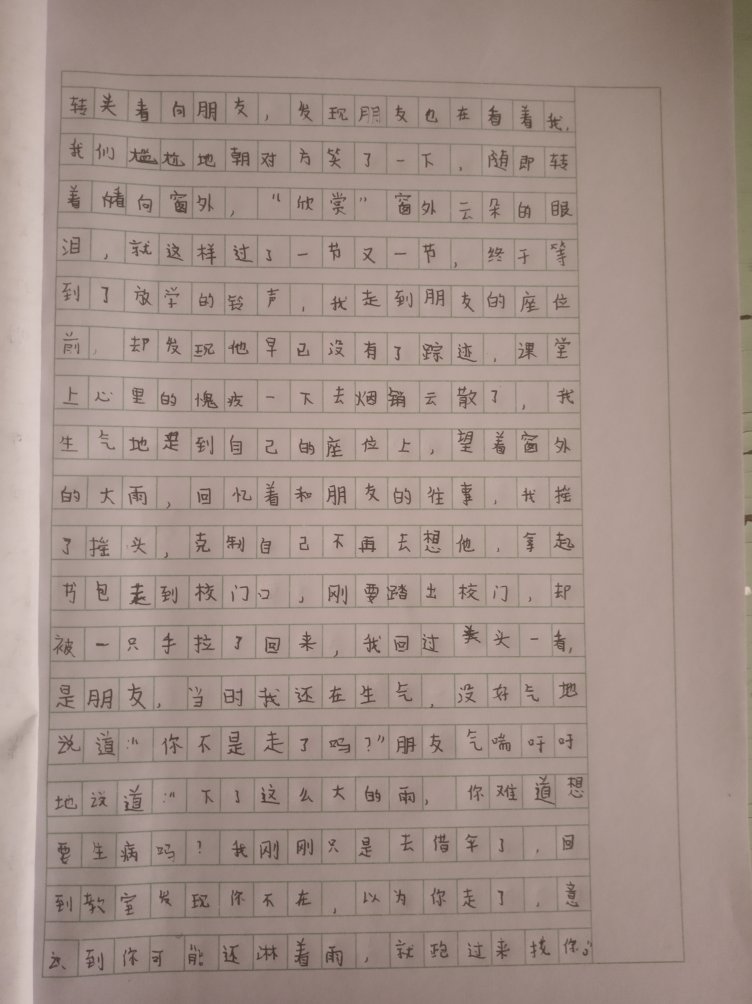 转头看向朋友，发现朋友也在看着我，
我们尴尬地朝对方笑了一下，随即转
着看向窗外，“欣赏”窗外云朵的眼
泪，就这样过了一节又一节，终于等
到了放学的铃声，我走到朋友的座位
前，却发现他早已没有了踪迹，课堂
上心里的愧疚一下去烟销云散了，我
生气地走到自己的座位上，望着窗外
的大雨，回忆着和朋友的往事，我摇
了摇头，克制自己不再去想他，拿起
书包走到校门口，刚要踏出校门，却
被一只手拉了回来，我回过头一看，
是朋友，当时我还在生气，没好气地
说道：“你不是走了吗？”朋友气喘吁吁
地说道：“下了这么大的雨，你难道想
要生病吗？我刚刚只是去借伞了，回
到教室发现你不在，以为你走了，意
识到你可能还淋着雨，就跑过来找你。”